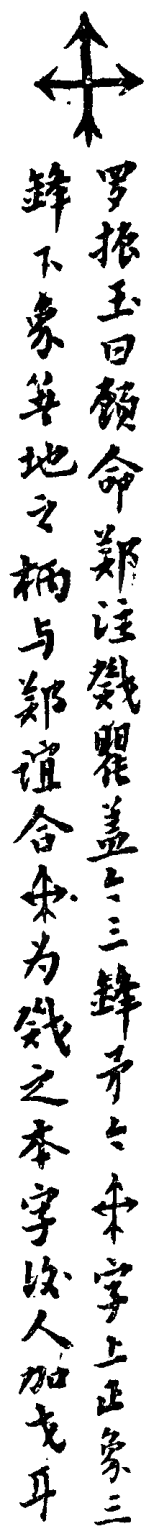 罗振玉曰顾命郑注戣瞿盖今三鋒矛今字上正象三
鋒下象箸地之柄与郑谊合为戣之本字後人加戈耳